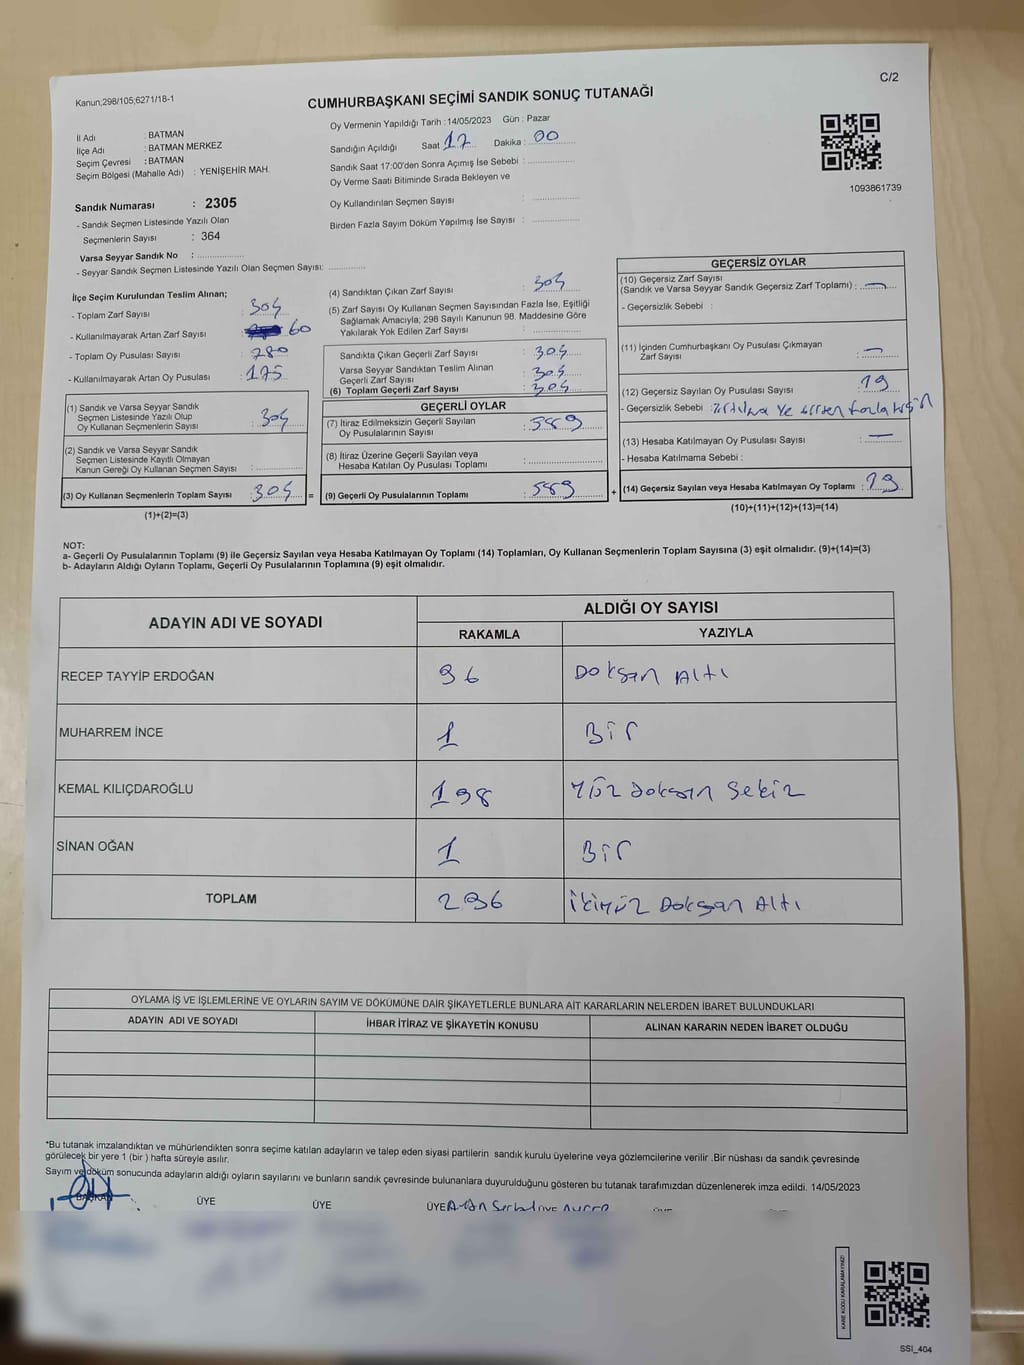 C/2
Kanun,298/105;6271/18-1
CUMHURBAŞKANI SEÇİMİ SANDIK SONUÇ TUTANAĞI
İl Adı : BATMAN
İlçe Adı : BATMAN MERKEZ
Seçim Çevresi : BATMAN
Seçim Bölgesi (Mahalle Adı) : YENİŞEHİR MAH.
Oy Vermenin Yapıldığı Tarih : 14/05/2023 Gün : Pazar
Sandığın Açıldığı Saat 17 Dakika : 00
Sandık Saat 17:00'den Sonra Açımış İse Sebebi :
Oy Verme Saati Bitiminde Sırada Bekleyen ve
Oy Kullandırılan Seçmen Sayısı :
Birden Fazla Sayım Döküm Yapılmış İse Sayısı :
1093861739
Sandık Numarası : 2305
- Sandık Seçmen Listesinde Yazılı Olan
Seçmenlerin Sayısı : 364
Varsa Seyyar Sandık No :
- Seyyar Sandık Seçmen Listesinde Yazılı Olan Seçmen Sayısı:
İlçe Seçim Kurulundan Teslim Alınan;
- Toplam Zarf Sayısı
- Kullanılmayarak Artan Zarf Sayısı 60
- Toplam Oy Pusulası Sayısı : 780
- Kullanılmayarak Artan Oy Pusulası : 175
(1) Sandık ve Varsa Seyyar Sandık
Seçmen Listesinde Yazılı Olup
Oy Kullanan Seçmenlerin Sayısı : 304
(2) Sandık ve Varsa Seyyar Sandık
Seçmen Listesinde Kayıtlı Olmayan
Kanun Gereği Oy Kullanan Seçmen Sayısı :
(3) Oy Kullanan Seçmenlerin Toplam Sayısı : 304 =
(1)+(2)=(3)
(4) Sandıktan Çıkan Zarf Sayısı : 304
(5) Zarf Sayısı Oy Kullanan Seçmen Sayısından Fazla İse, Eşitliği
Sağlamak Amacıyla, 298 Sayılı Kanunun 98. Maddesine Göre
Yakılarak Yok Edilen Zarf Sayısı :
Sandıkta Çıkan Geçerli Zarf Sayısı : 304
Varsa Seyyar Sandıktan Teslim Alınan
Geçerli Zarf Sayısı : 304
(6) Toplam Geçerli Zarf Sayısı : 304
GEÇERLİ OYLAR
(7) İtiraz Edilmeksizin Geçerli Sayılan
Oy Pusulalarının Sayısı : 589
(8) İtiraz Üzerine Geçerli Sayılan veya
Hesaba Katılan Oy Pusulası Toplamı :
(9) Geçerli Oy Pusulalarının Toplamı : 589 +
GEÇERSİZ OYLAR
(10) Geçersiz Zarf Sayısı
(Sandık ve Varsa Seyyar Sandık Geçersiz Zarf Toplamı) : —
- Geçersizlik Sebebi :
(11) İçinden Cumhurbaşkanı Oy Pusulası Çıkmayan
Zarf Sayısı : —
(12) Geçersiz Sayılan Oy Pusulası Sayısı : 19
- Geçersizlik Sebebi : ve birden fazla
(13) Hesaba Katılmayan Oy Pusulası Sayısı : —
- Hesaba Katılmama Sebebi :
(14) Geçersiz Sayılan veya Hesaba Katılmayan Oy Toplamı : 19
(10)+(11)+(12)+(13)=(14)
NOT:
a- Geçerli Oy Pusulalarının Toplamı (9) ile Geçersiz Sayılan veya Hesaba Katılmayan Oy Toplamı (14) Toplamları, Oy Kullanan Seçmenlerin Toplam Sayısına (3) eşit olmalıdır. (9)+(14)=(3)
b- Adayların Aldığı Oyların Toplamı, Geçerli Oy Pusulalarının Toplamına (9) eşit olmalıdır.
ADAYIN ADI VE SOYADI ALDIĞI OY SAYISI
RAKAMLA YAZIYLA
RECEP TAYYİP ERDOĞAN 96 Doksan Altı
MUHARREM İNCE 1 Bir
KEMAL KILIÇDAROĞLU 198 Yüz doksan sekiz
SİNAN OĞAN 1 Bir
TOPLAM 296 İkiyüz Doksan Altı
OYLAMA İŞ VE İŞLEMLERİNE VE OYLARIN SAYIM VE DÖKÜMÜNE DAİR ŞİKAYETLERLE BUNLARA AİT KARARLARIN NELERDEN İBARET BULUNDUKLARI
ADAYIN ADI VE SOYADI İHBAR İTİRAZ VE ŞİKAYETİN KONUSU ALINAN KARARIN NEDEN İBARET OLDUĞU
*Bu tutanak imzalandıktan ve mühürlendikten sonra seçime katılan adayların ve talep eden siyasi partilerin sandık kurulu üyelerine veya gözlemcilerine verilir .Bir nüshası da sandık çevresinde
görülecek bir yere 1 (bir ) hafta süreyle asılır.
Sayım ve döküm sonucunda adayların aldığı oyların sayılarını ve bunların sandık çevresinde bulunanlara duyurulduğunu gösteren bu tutanak tarafımızdan düzenlenerek imza edildi. 14/05/2023
BAŞKAN ÜYE ÜYE ÜYE ÜYE
KARE KODU KARALAMAYINIZ!
SSI_404